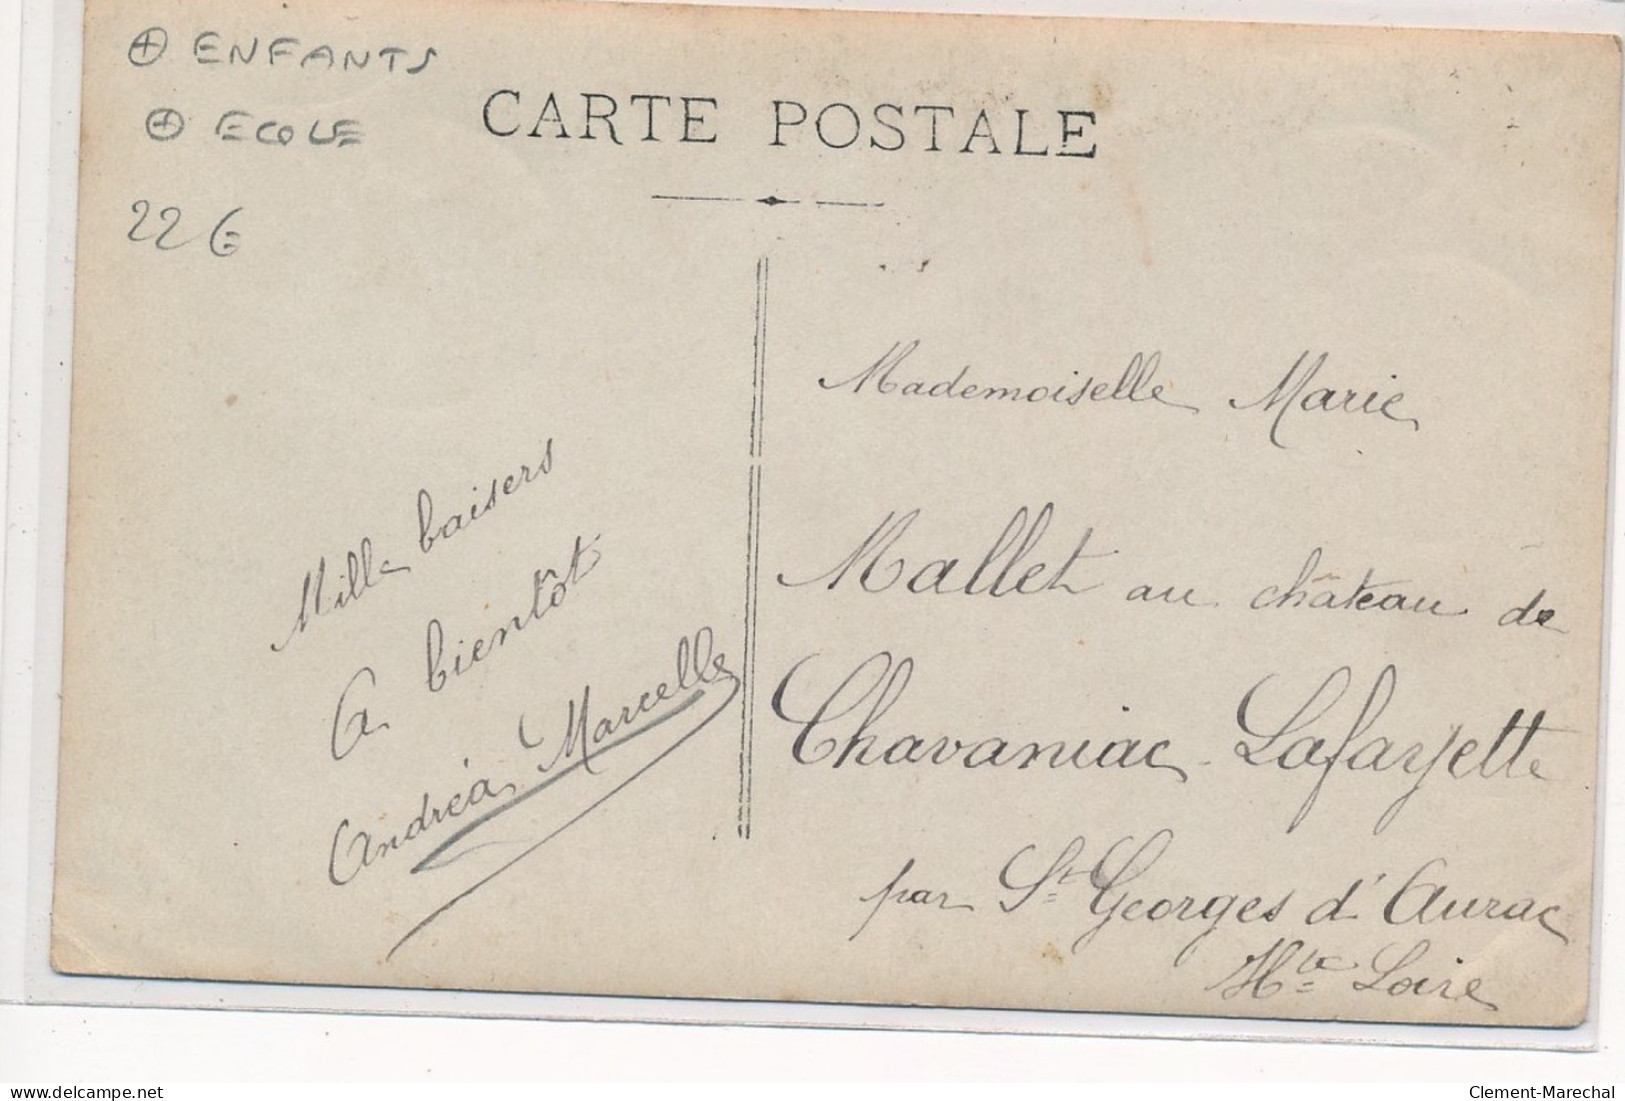 ⊕ ENFANTS
⊕ ECOLE
22€
CARTE POSTALE
Mille baisers
A bientôt
Andréa, Marcelle
Mademoiselle Marie
Mallet au château de
Chavaniac-Lafayette
par St Georges d'Aurac
Hte Loire
delcampe.net
Clement-Marechal